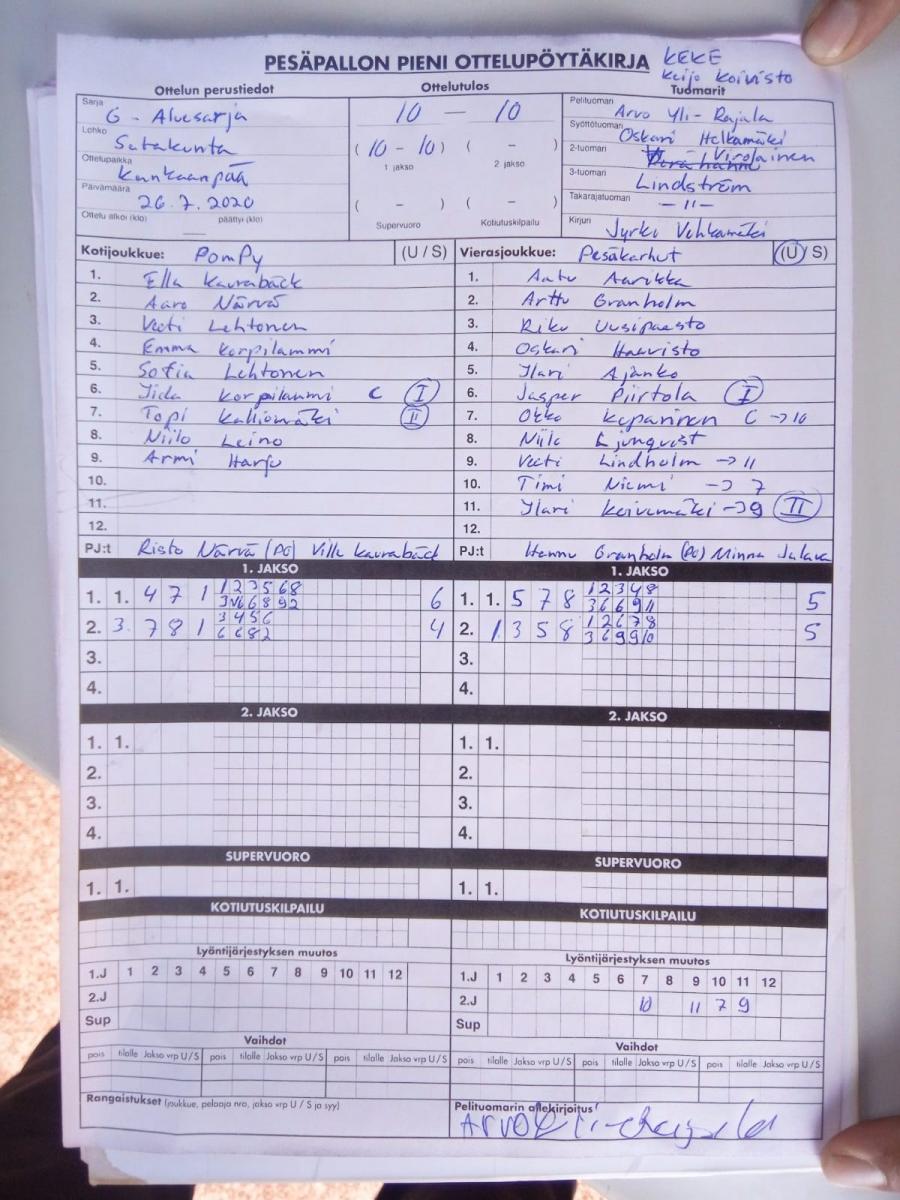 PESÄPALLON PIENI OTTELUPÖYTÄKIRJA
KEKE
Keijo Koivisto
Ottelun perustiedot
Ottelutulos
Tuomarit
Sarja
G - Aluesarja
Lohko
Satakunta
Ottelupaikka
Kankaanpää
Päivämäärä
26.7.2020
Ottelu alkoi (klo) päättyi (klo)
10 — 10
( 10 - 10 ) ( - )
1 jakso 2. jakso
( - ) ( - )
Supervuoro Kotiutuskilpailu
Pelituomari
Arvo Yli-Rajala
Syöttötuomari
Oskari Helkamäki
2-tuomari
Virolainen
3-tuomari
Lindström
Takarajatuomari
— 11 —
Kirjuri
Jyrki Vehkamäki
Kotijoukkue: PomPy (U / S)
1. Ella Kaurabäck
2. Aaro Närvä
3. Veeti Lehtonen
4. Emma Korpilammi
5. Sofia Lehtonen
6. Iida Korpilammi C I
7. Topi Kalliomäki II
8. Niilo Leino
9. Armi Harju
10.
11.
12.
PJ:t Risto Närvä (PJ) Ville Kaurabäck
Vierasjoukkue: Pesäkarhut (U / S)
1. Aatu Aarikka
2. Arttu Granholm
3. Riku Uusipaasto
4. Oskari Haavisto
5. Ilari Ajanko
6. Jasper Piirtola I
7. Okko Kepaninen C → 10
8. Niila Ljungqvist
9. Veeti Lindholm → 11
10. Timi Niemi → 7
11. Ilari Koivumäki → 9 II
12.
PJ:t Hannu Granholm (PJ) Minna Julava
1. JAKSO
1. 1. 4 7 1 1 2 3 5 6 8 6
2. 3. 7 8 1 3 4 5 6 4
6 6 8 2
3.
4.
1. JAKSO
1. 1. 5 7 8 1 2 3 4 8 5
3 6 6 9 11
2. 1. 3 5 8 1 2 6 7 8 5
3 6 9 9 10
3.
4.
2. JAKSO
1. 1.
2.
3.
4.
2. JAKSO
1. 1.
2.
3.
4.
SUPERVUORO
1. 1.
SUPERVUORO
1. 1.
KOTIUTUSKILPAILU
KOTIUTUSKILPAILU
Lyöntijärjestyksen muutos
1.J 1 2 3 4 5 6 7 8 9 10 11 12
2.J
Sup
Lyöntijärjestyksen muutos
1.J 1 2 3 4 5 6 7 8 9 10 11 12
2.J 10 11 7 9
Sup
Vaihdot
pois tilalle Jakso vrp U / S pois tilalle Jakso vrp U / S pois tilalle Jakso vrp U / S
Vaihdot
pois tilalle Jakso vrp U / S pois tilalle Jakso vrp U / S pois tilalle Jakso vrp U / S
Rangaistukset (joukkue, pelaaja nro, jakso vrp U / S ja syy)
Pelituomarin allekirjoitus